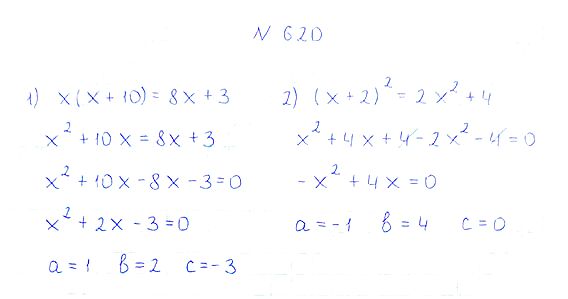 N 620
1) x(x+10)=8x+3
x²+10x=8x+3
x²+10x-8x-3=0
x²+2x-3=0
a=1 b=2 c=-3
2) (x+2)²=2x²+4
x²+4x+4-2x²-4=0
-x²+4x=0
a=-1 b=4 c=0